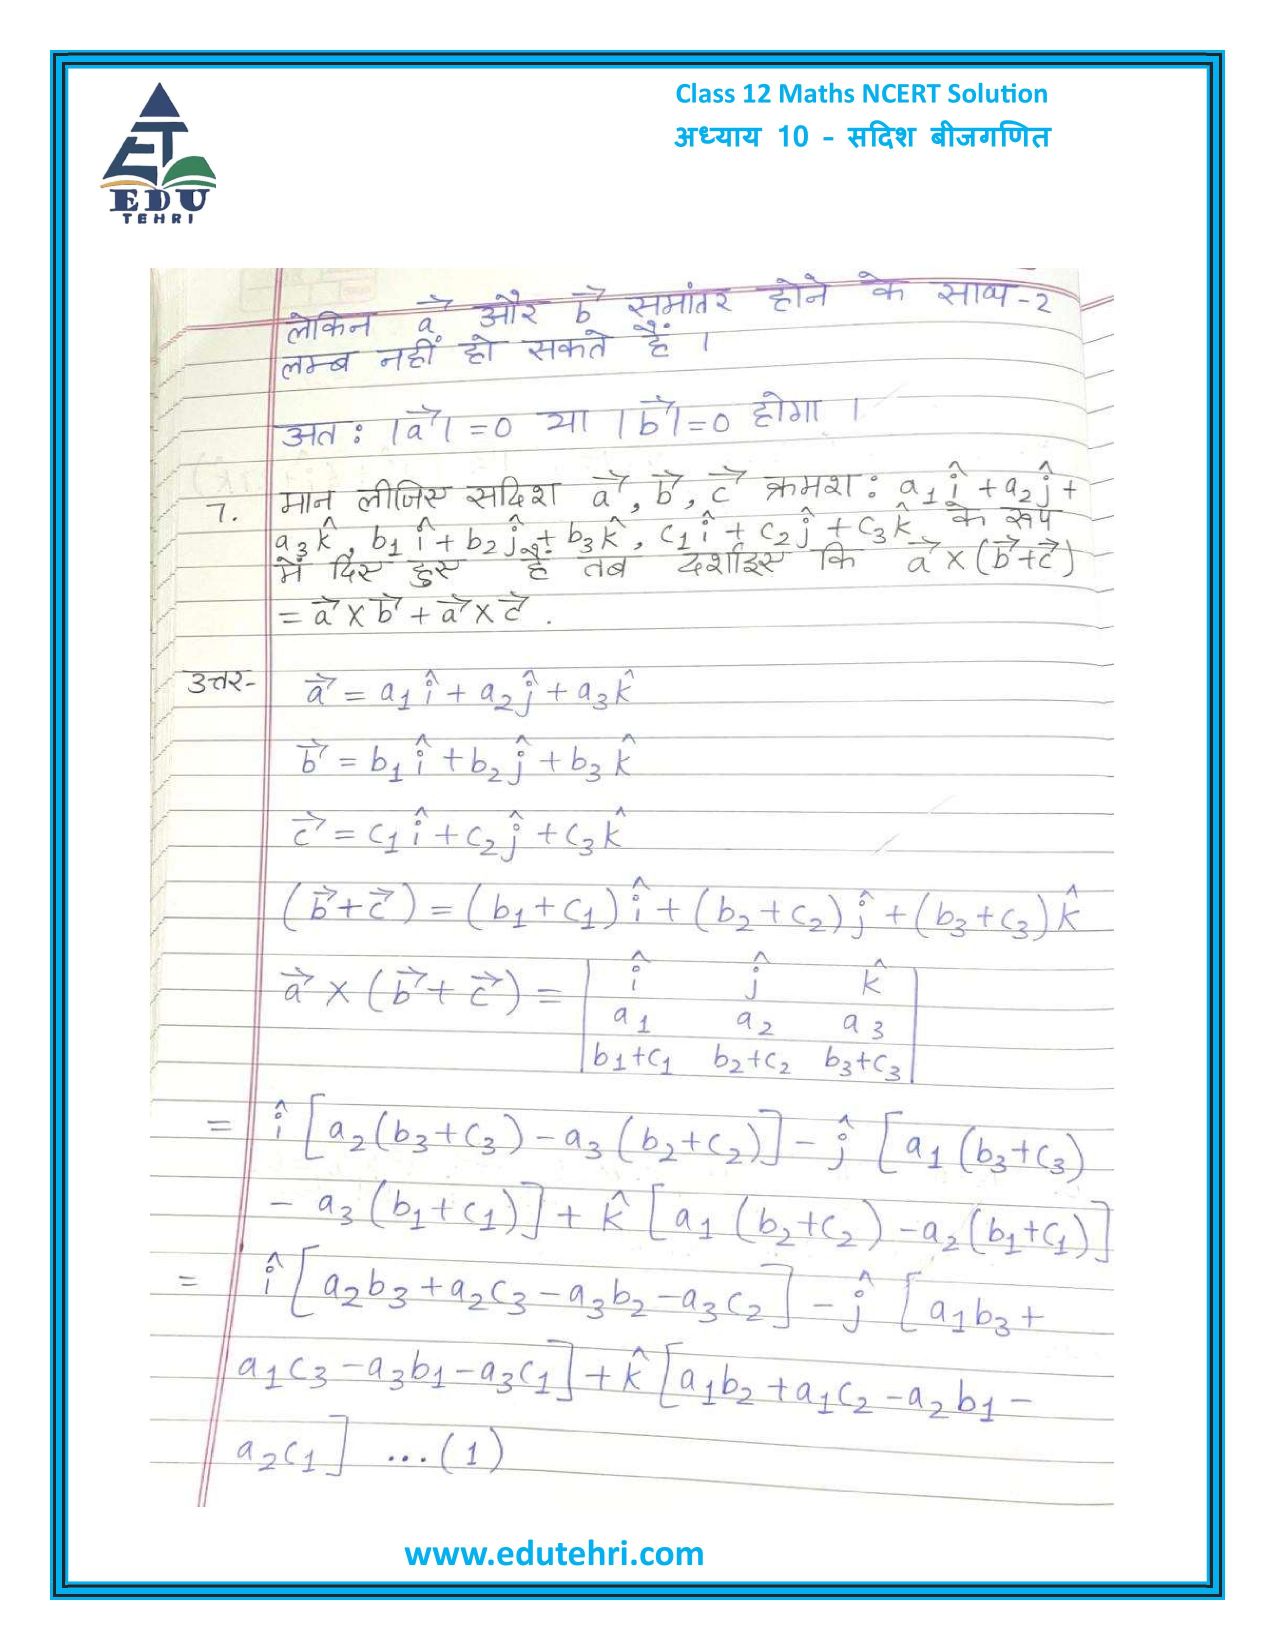 Class 12 Maths NCERT Solution
अध्याय 10 - सदिश बीजगणित
EDU
TEHRI
लेकिन a⃗ और b⃗ समांतर होने के साथ-2
लम्ब नहीं हो सकते हैं ।
अत: |a⃗| = 0 या |b⃗| = 0 होगा ।
7. मान लीजिए सदिश a⃗, b⃗, c⃗ क्रमश: a₁î + a₂ĵ +
a₃k̂, b₁î + b₂ĵ + b₃k̂, c₁î + c₂ĵ + c₃k̂ के रूप
में दिए हुए हैं तब दर्शाइए कि a⃗ × (b⃗ + c⃗)
= a⃗ × b⃗ + a⃗ × c⃗ .
उत्तर- a⃗ = a₁î + a₂ĵ + a₃k̂
b⃗ = b₁î + b₂ĵ + b₃k̂
c⃗ = c₁î + c₂ĵ + c₃k̂
(b⃗ + c⃗) = (b₁ + c₁)î + (b₂ + c₂)ĵ + (b₃ + c₃)k̂
a⃗ × (b⃗ + c⃗) = | î ĵ k̂ |
| a₁ a₂ a₃ |
| b₁+c₁ b₂+c₂ b₃+c₃ |
= î [a₂(b₃+c₃) - a₃(b₂+c₂)] - ĵ [a₁(b₃+c₃)
- a₃(b₁+c₁)] + k̂ [a₁(b₂+c₂) - a₂(b₁+c₁)]
= î [a₂b₃ + a₂c₃ - a₃b₂ - a₃c₂] - ĵ [a₁b₃ +
a₁c₃ - a₃b₁ - a₃c₁] + k̂ [a₁b₂ + a₁c₂ - a₂b₁ -
a₂c₁] ...(1)
www.edutehri.com